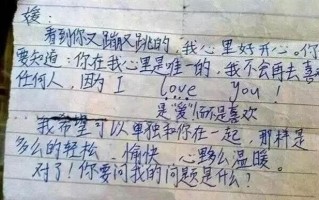 媛:
看到你又蹦又跳的,我心里好开心。你
要知道:你在我心里是唯一的,我不会再去喜欢
任何人,因为 I love you!
是“爱”而不是喜欢
我希望可以单独和你在一起,那样是
多么的轻松、愉快、心多么温暖。
对了!你要问我的问题是什么?